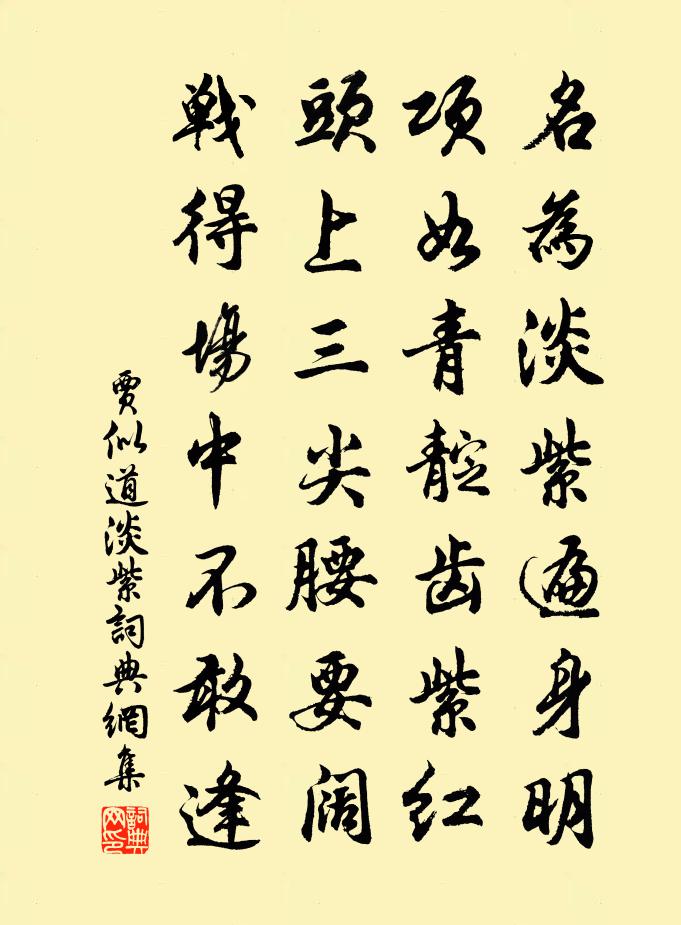 名為淡紫遍身明
項如青靛齿紫紅
頭上三尖腰要阔
戦得場中不敢逢
賈似道淡紫詞典網集
詞典网印